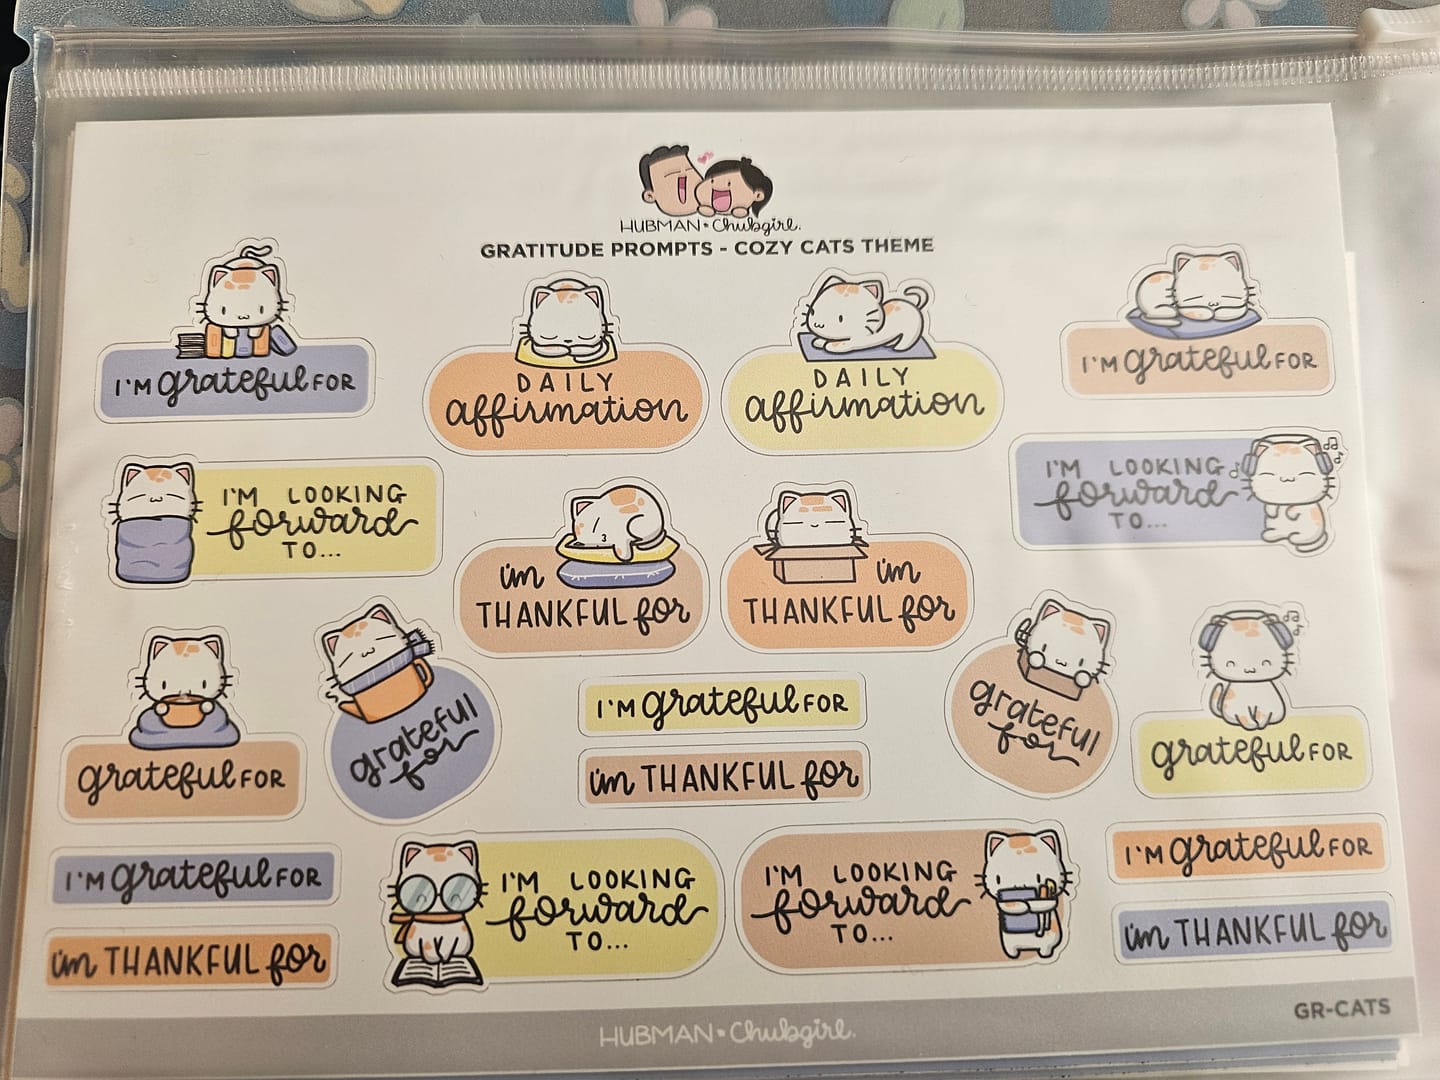 HUBMAN • Chubgirl.
GRATITUDE PROMPTS - COZY CATS THEME
I'M grateful FOR
DAILY
affirmation
DAILY
affirmation
I'M grateful FOR
I'M LOOKING
forward
TO...
im
THANKFUL for
im
THANKFUL for
I'M LOOKING
forward
TO...
grateful FOR
grateful
for
I'M grateful FOR
im THANKFUL for
grateful
for
grateful FOR
I'M grateful FOR
im THANKFUL for
I'M LOOKING
forward
TO...
I'M LOOKING
forward
TO...
I'M grateful FOR
im THANKFUL for
GR-CATS
HUBMAN • Chubgirl.